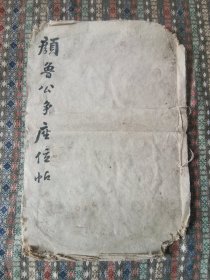 顏魯公争座位帖